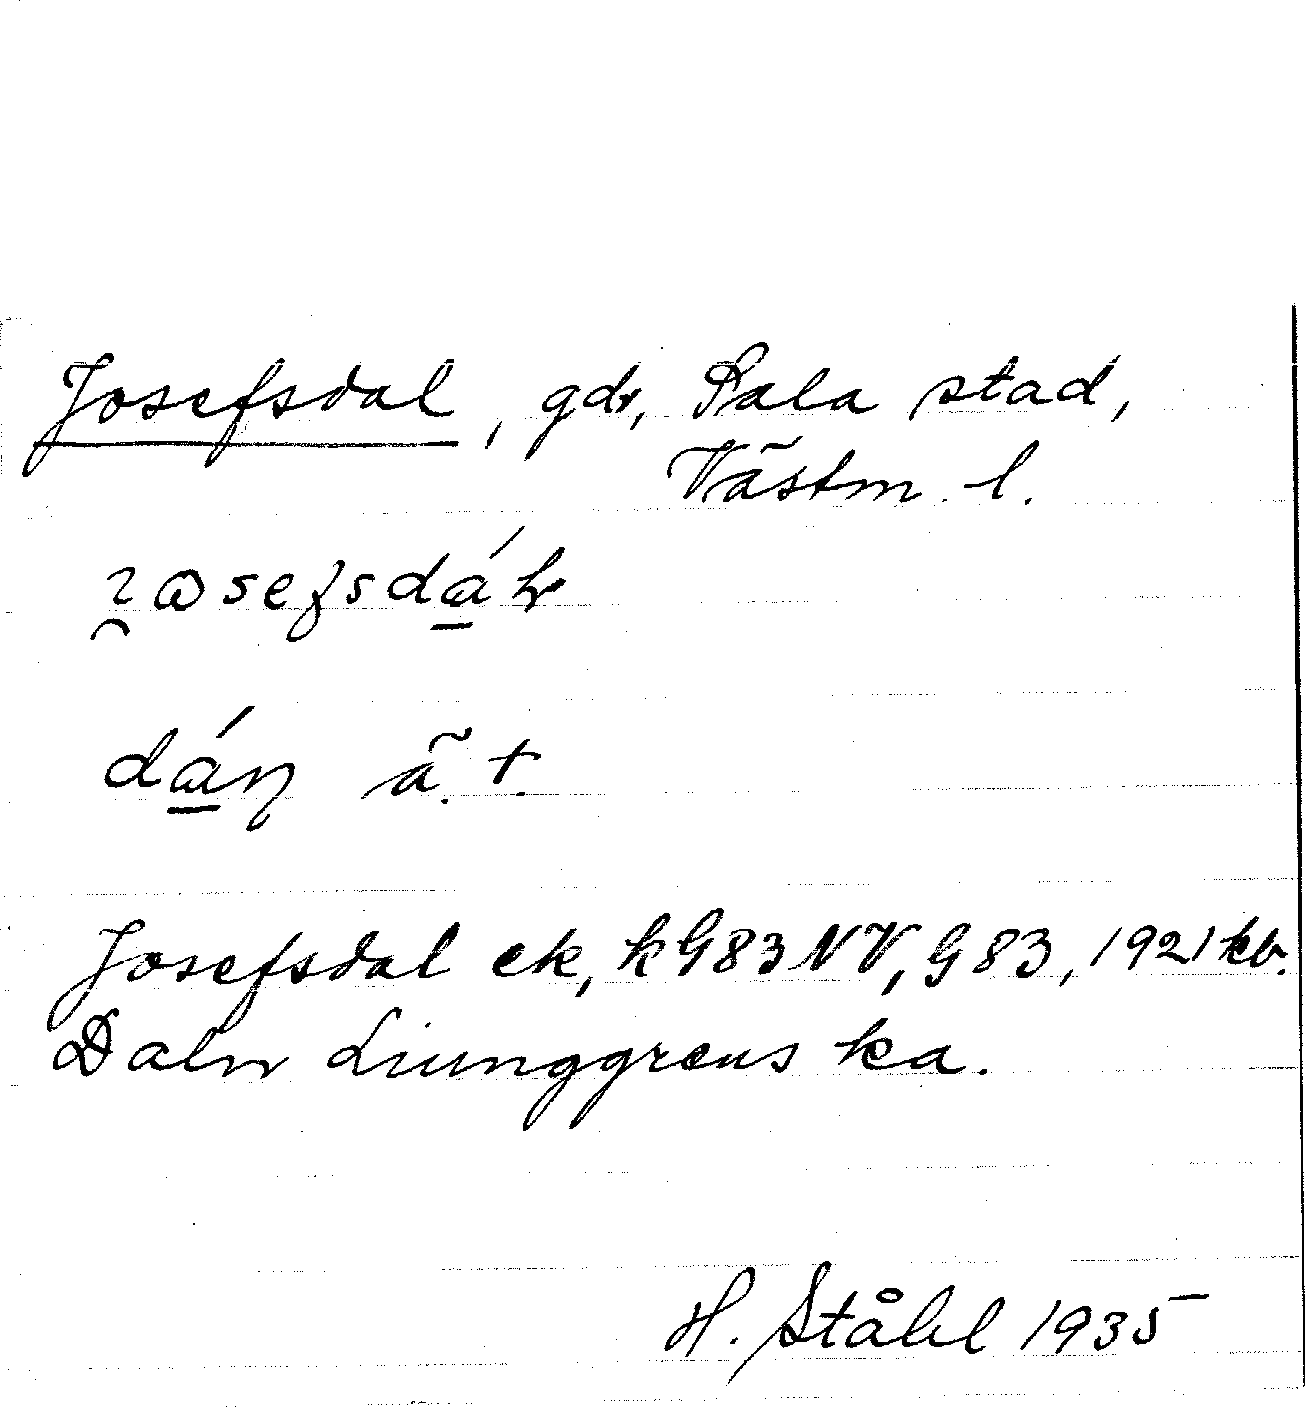 Josefsdal, gdr, Sala stad,
Västm. l.
dán ä. t.
Josefsdal ek, kG83NV, G83, 1921 kb.
Daln Liunggrens ka.
H. Ståhl 1935